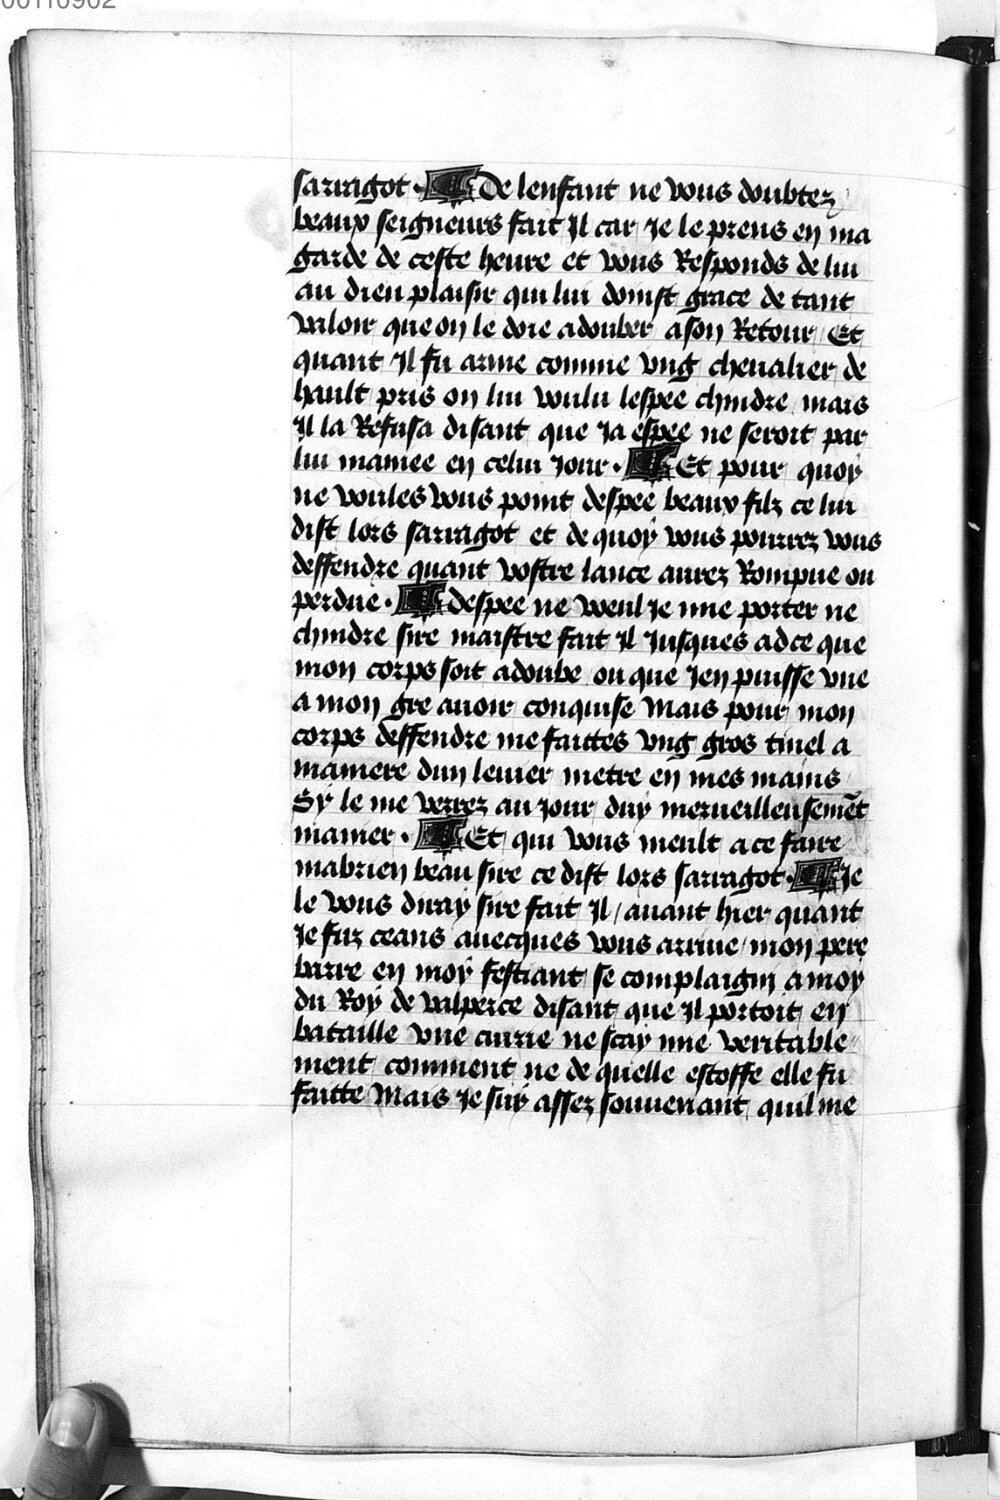 00110902
sarragot · De lenfant ne vous doubtez
beaux seigneurs fait Il car Je le prens en ma
garde de ceste heure et vous Responds de lui
au dieu plaisir qui lui doinst grace de tant
valoir que on le doie adouber a son Retour Et
quant Il fu arme comme vng cheualier de
hault pris on lui voulu lespee chindre mais
Il la Refusa disant que Ja espee ne seroit par
lui maniee en celui Jour · Et pour quoy
ne voules vous point despee beaux filz ce lui
dist lors sarragot et de quoy vous pourrez vous
deffendre quant vostre lance aurez Rompue ou
perdue · despee ne veul Je mie porter ne
chindre sire maistre fait Il Jusques adce que
mon corps soit adoube ou que Jen puisse vne
a mon gre auoir conquise Mais pour mon
corps deffendre me faittes vng gros tinel a
maniere dun leuier metre en mes mains
Sy le me verrez au Jour duy merueilleusemēt
manier · Et qui vous meult a ce faire
mabrien beau sire ce dist lors sarragot · Je
le vous diray sire fait Il / auant hier quant
Je fuz ceans auecques vous arriue / mon pere
barre en moy festiant se complaigni a moy
du Roy de valperce disant que Il portoit en
bataille vne cuirie ne scay mie veritable"
ment comment ne de quelle estoffe elle fu
faitte Mais Je suy assez souuenant quil me